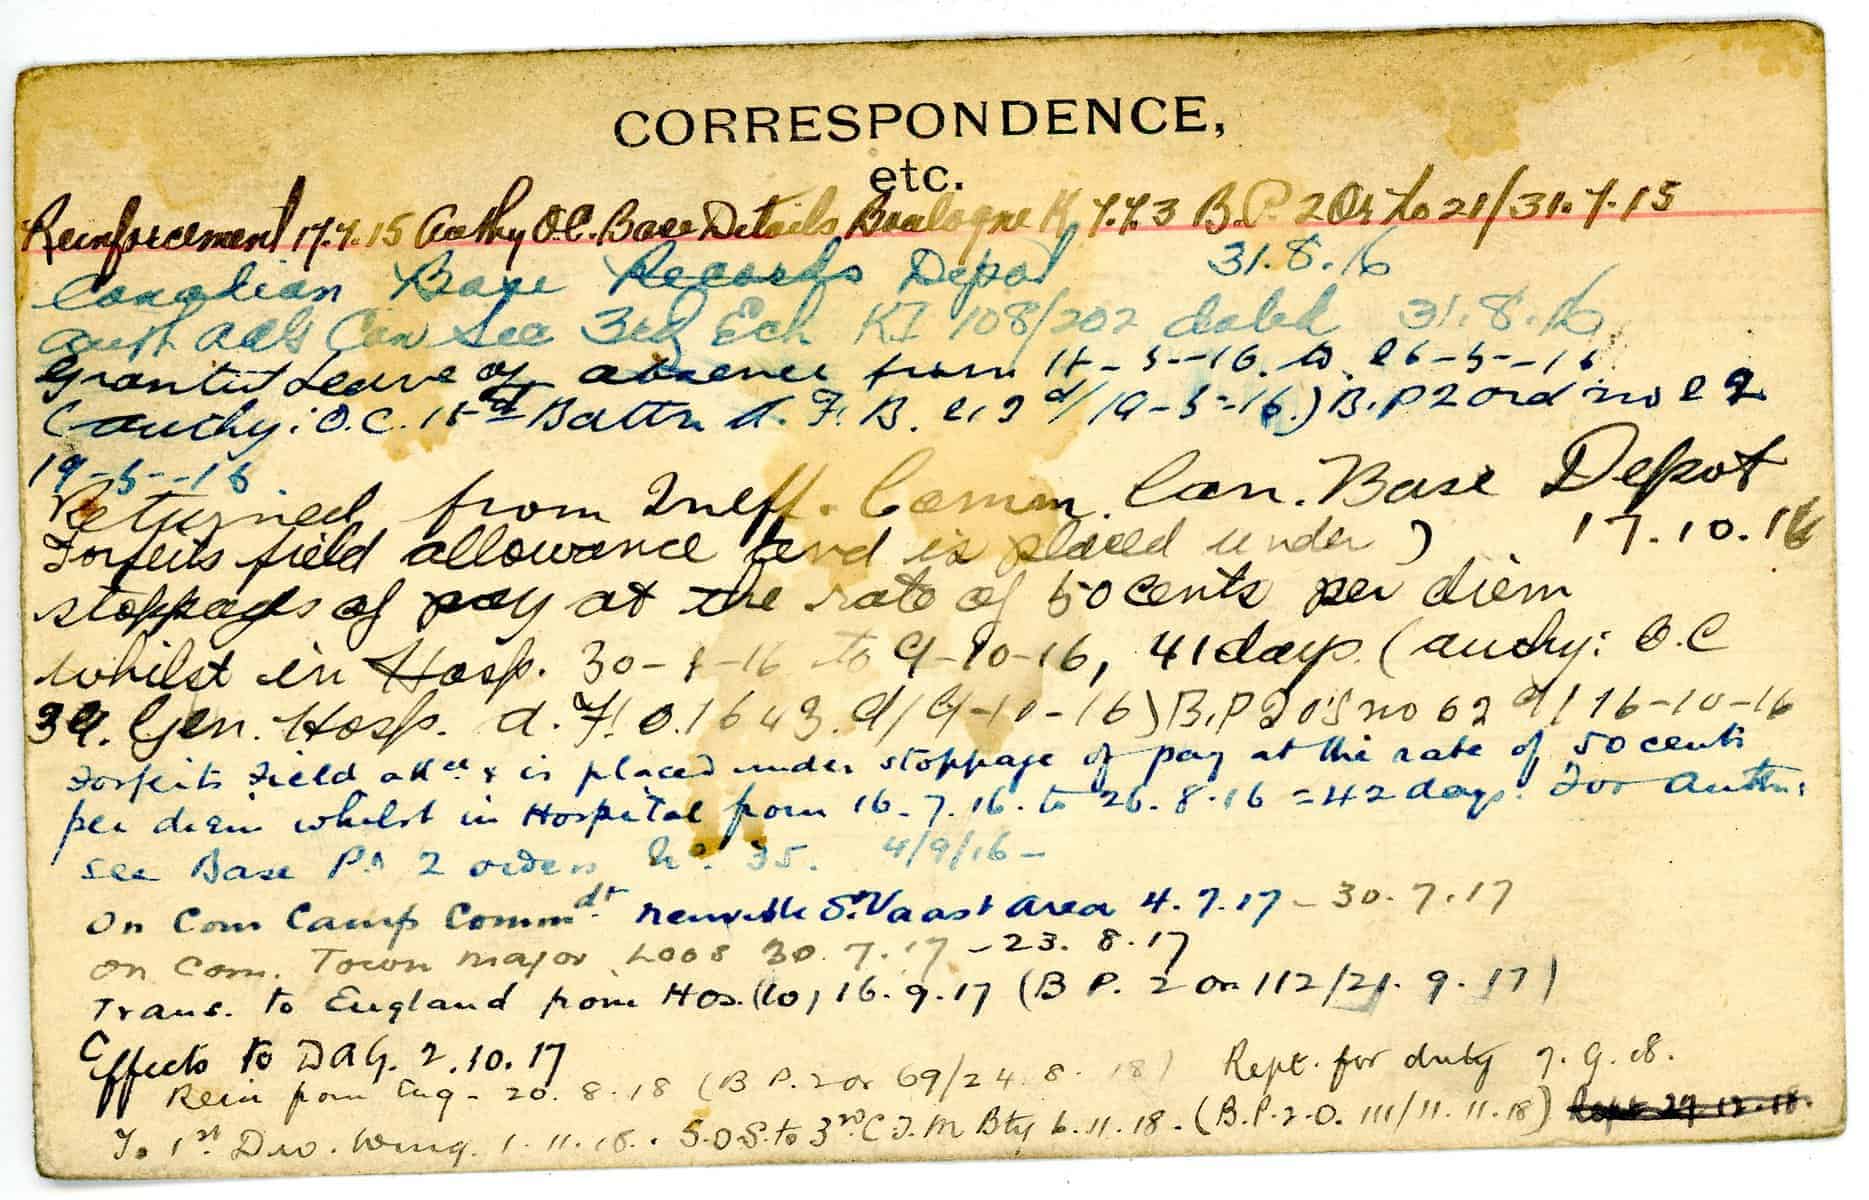 CORRESPONDENCE,
etc.
Reinforcement 17.7.15 Authy O.C. Base Details Boulogne K 7.7.3 B.P. 2 Or No 21/31.7.15
Canadian Base Records Depot 31.8.16
auth AAG Can Sec 3rd Ech KI 108/202 dated 31.8.16
Granted Leave of absence from
(authy: O.C. 15th Battn A.F.B. B.P 2 Ord no
Returned from Ineff. Comm. Can. Base Depot
17.10.16
Forfeits field allowance and is placed under )
stoppages of pay at the rate of 50 cents per diem
whilst in Hosp. 30-8-16 to 9-10-16, 41 days. (authy: O.C
39. Gen. Hosp. A.F. O.1643. d/9-10-16) B.P 2 O's no 62 d/ 16-10-16
Forfeits Field allce & is placed under stoppage of pay at the rate of 50 cents
per diem whilst in Hospital from 16.7.16. to 26.8.16 = 42 days. For Auth:
see Base P. 2 orders No. 35. 4/9/16 -
On Com Camp Commdt. Neuville St. Vaast Area 4.7.17 - 30.7.17
On Com. Town Major Loos 30.7.17 - 23.8.17
Trans. to England from Hos. 16.9.17 (B P. 2 or 112/21.9.17)
Effects to DAG. 2.10.17
Rein from Eng - 20.8.18 (B P. 2 or 69/24.8.18) Rept. for duty 7.9.18.
To 1st Div. Wing. 1.11.18. S.O.S. to 3rd C.T.M Bty 6.11.18. (B.P.2.O. 111/11.11.18) Rept 29.12.18.